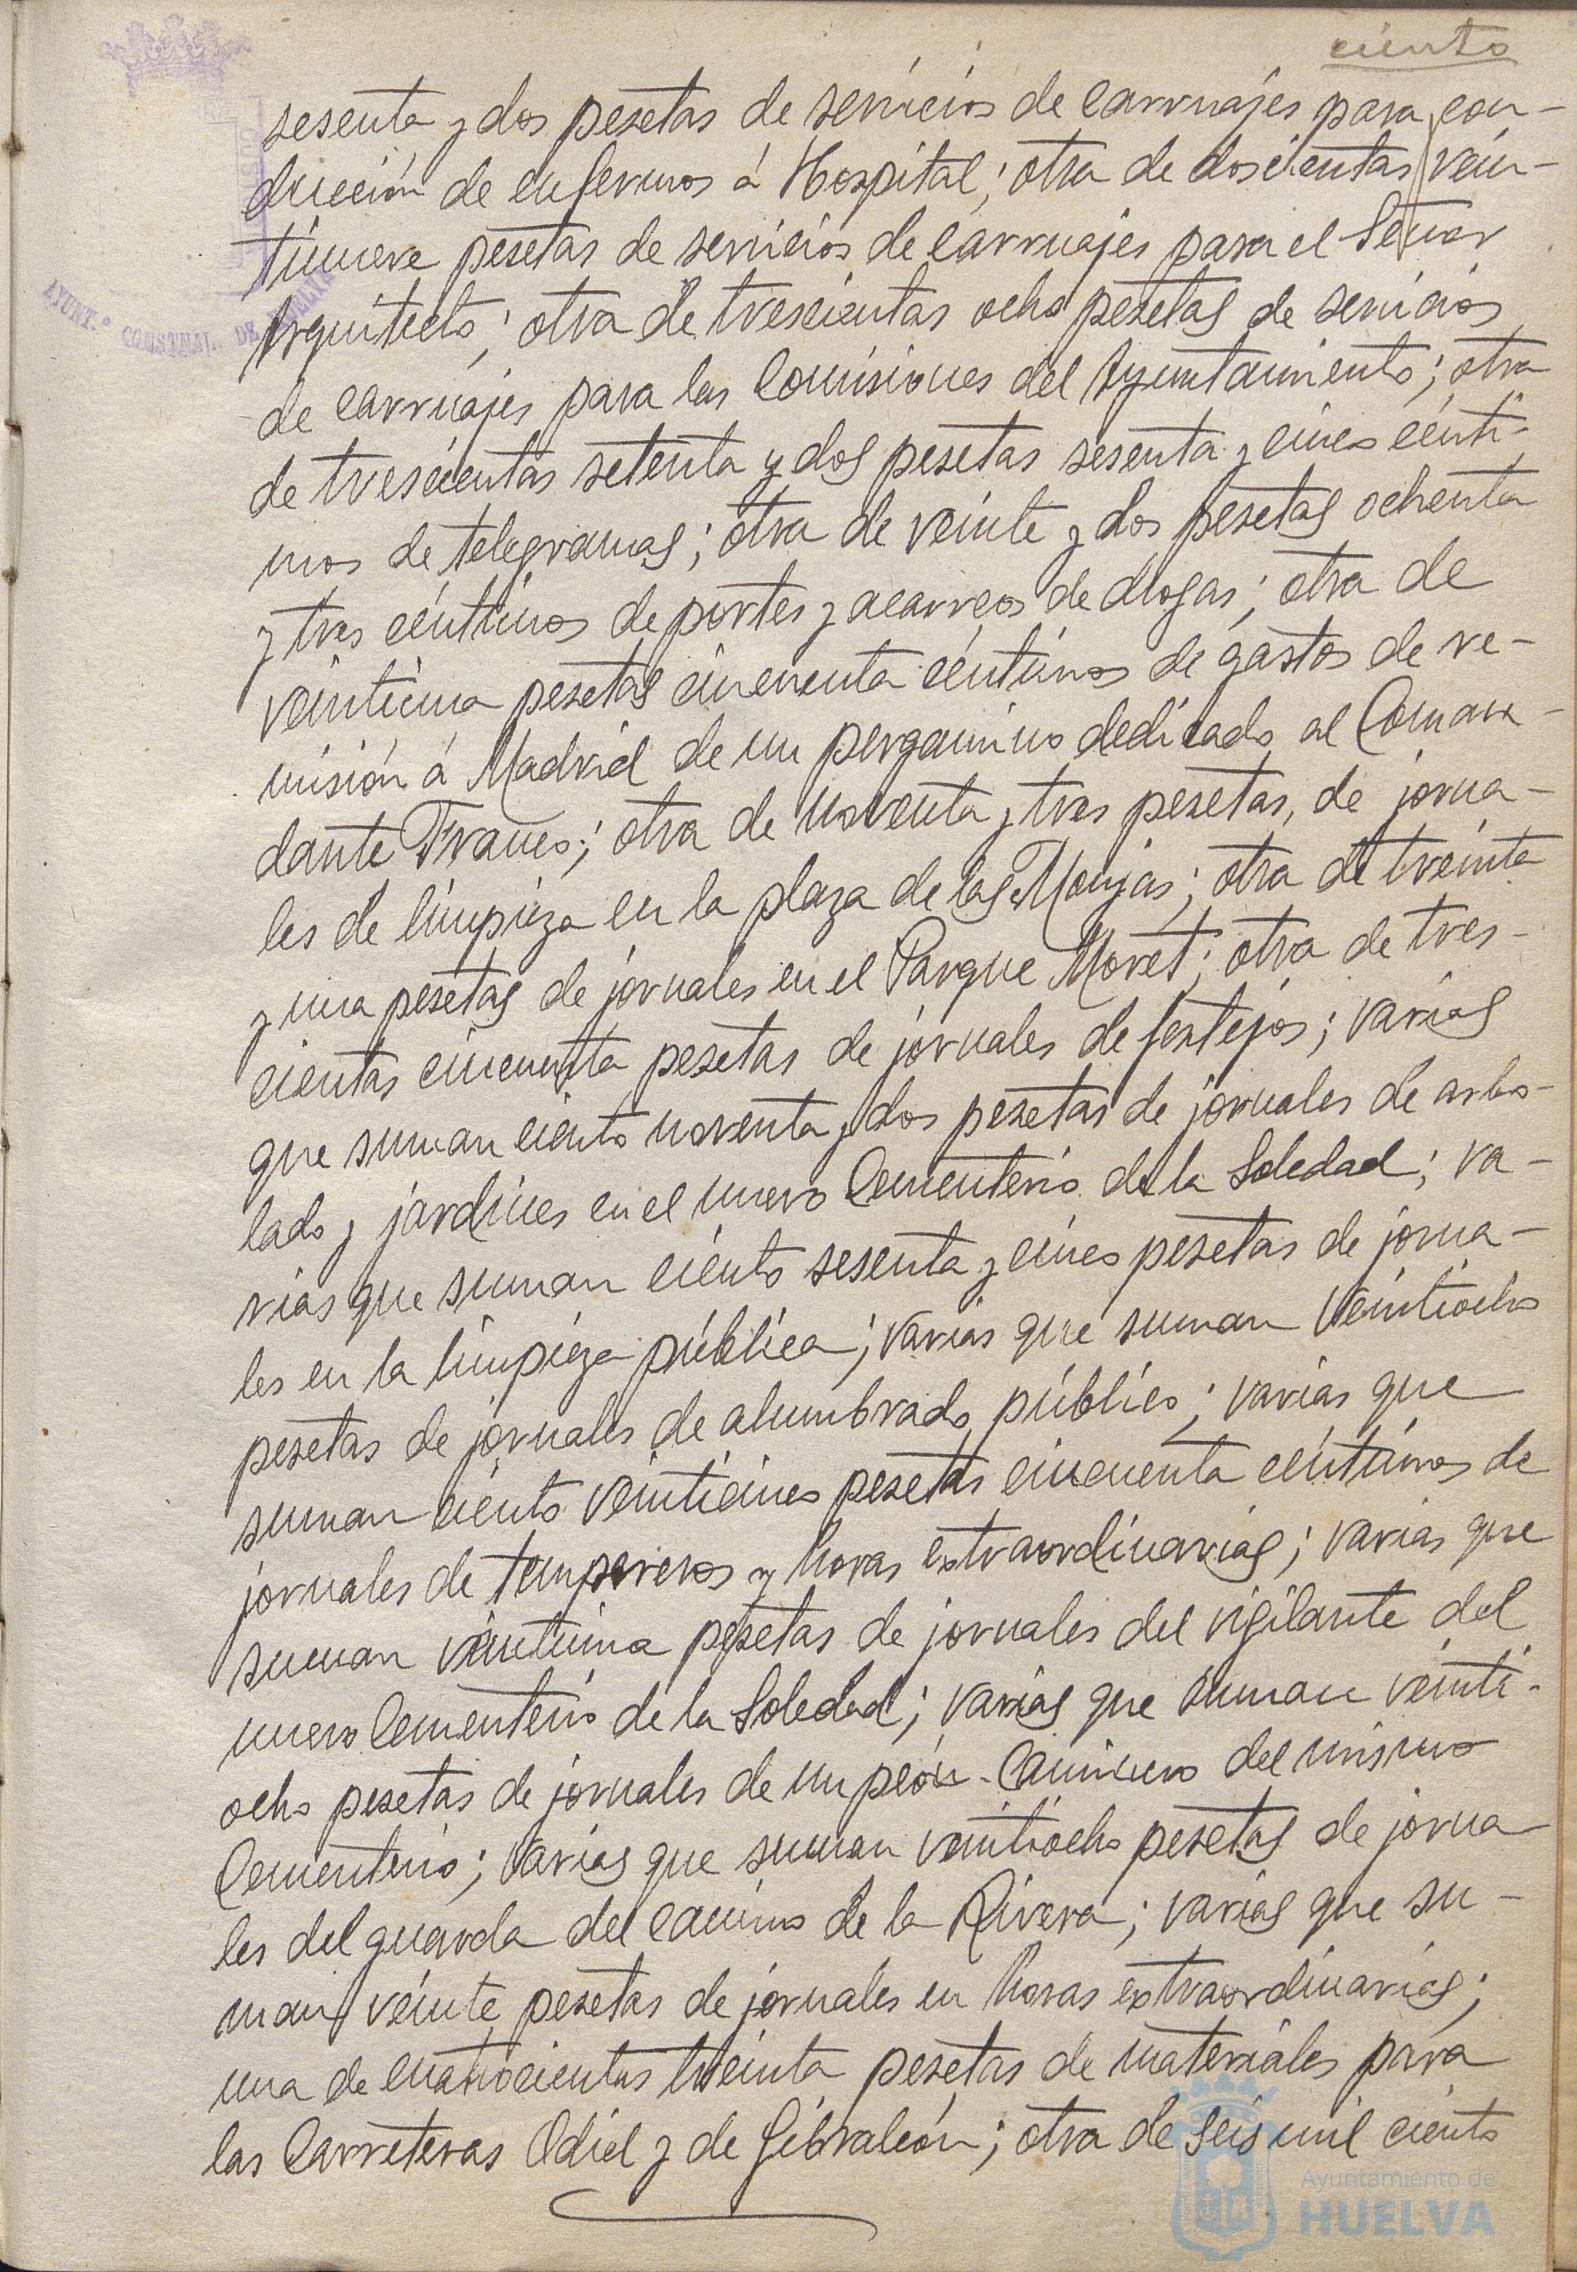 ciento
sesenta y dos pesetas de servicios de carruajes para con-
ducción de enfermos á Hospital; otra de doscientas vein-
tinueve pesetas de servicios de carruajes para el Señor
Arquitecto; otra de trescientas ocho pesetas de servicios
de carruajes para las Comisiones del Ayuntamiento; otra
de trescientas setenta y dos pesetas sesenta y cinco cénti-
mos de telegramas; otra de veinte y dos pesetas ochenta
y tres céntimos de portes y acarreos de drogas; otra de
veintiuna pesetas cincuenta céntimos de gastos de re-
misión á Madrid de un pergamino dedicado al Coman-
dante Franco; otra de noventa y tres pesetas, de jorna-
les de limpieza en la plaza de las Monjas; otra de treinta
y una pesetas de jornales en el Parque Moret; otra de tres-
cientas cincuenta pesetas de jornales de festejos; varias
que suman ciento noventa y dos pesetas de jornales de arbo-
lado y jardines en el nuevo Cementerio de la Soledad; va-
rias que suman ciento sesenta y cinco pesetas de jorna-
les en la limpieza pública; varias que suman veintiocho
pesetas de jornales de alumbrado público; varias que
suman ciento veinticinco pesetas cincuenta céntimos de
jornales de tempereros y horas extraordinarias; varias que
suman veintiuna pesetas de jornales del vigilante del
nuevo Cementerio de la Soledad; varias que suman veinti-
ocho pesetas de jornales de un peón-Caminero del mismo
Cementerio; varias que suman veintiocho pesetas de jorna
les del guarda del camino de la Rivera; varias que su-
man veinte pesetas de jornales en horas extraordinarias;
una de cuatrocientas treinta pesetas de materiales para
las Carreteras Odiel y de Gibraleón; otra de seis mil ciento
AYUNT.º CONSTNAL. DE HUELVA
Ayuntamiento de
HUELVA